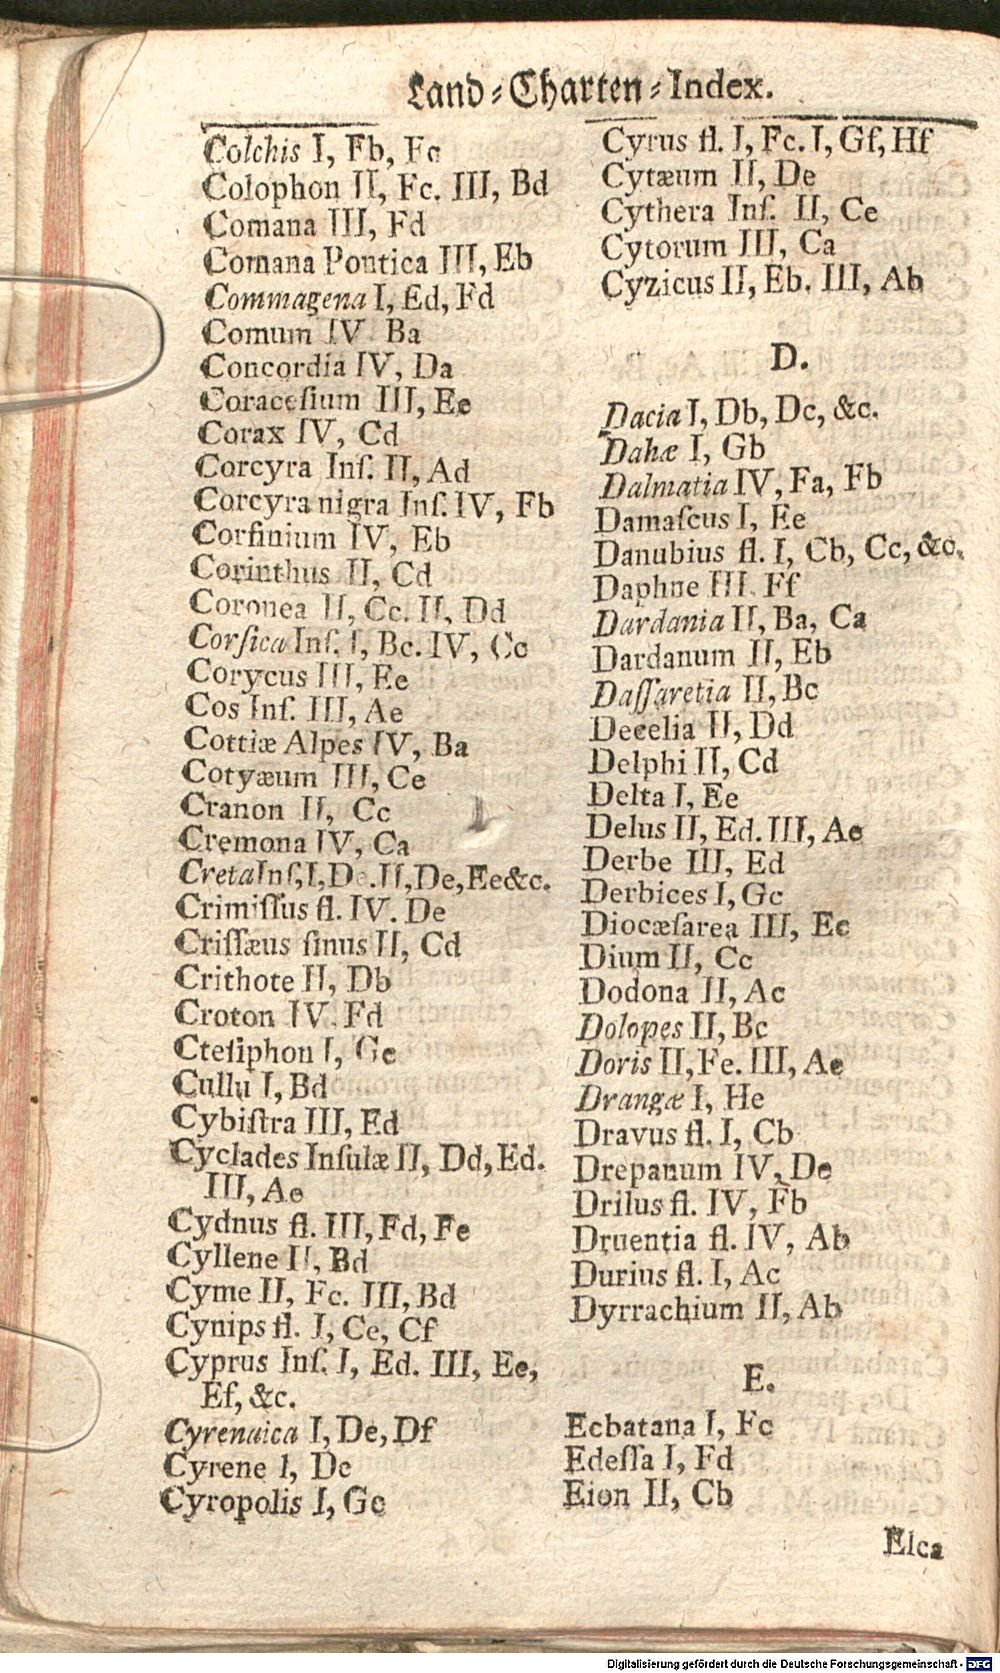 Land-Charten-Index.
Colchis I, Fb, Fc
Colophon II, Fc. III, Bd
Comana III, Fd
Comana Pontica III, Eb
Commagena I, Ed, Fd
Comum IV. Ba
Concordia IV, Da
Coraceſium III, Ee
Corax IV, Cd
Corcyra Inſ. II, Ad
Corcyra nigra Inſ. IV, Fb
Corfinium IV, Eb
Corinthus II, Cd
Coronea II, Cc. II, Dd
Corſica Inſ. I, Bc. IV, Cc
Corycus III, Ee
Cos Inſ. III, Ae
Cottiæ Alpes IV, Ba
Cotyæum III, Ce
Cranon II, Cc
Cremona IV, Ca
Creta Inſ, I, De. II, De, Ee &c.
Crimiſſus fl. IV. De
Criſſæus ſinus II, Cd
Crithote II, Db
Croton IV. Fd
Cteſiphon I, Ge
Cullu I, Bd
Cybiſtra III, Ed
Cyclades Inſulæ II, Dd, Ed.
III, Ae
Cydnus fl. III, Fd, Fe
Cyllene II, Bd
Cyme II, Fc. III, Bd
Cynips fl. I, Ce, Cf
Cyprus Inſ. I, Ed. III, Ee,
Ef, &c.
Cyrenaica I, De, Df
Cyrene I, De
Cyropolis I, Gc
Cyrus fl. I, Fc. I, Gf, Hf
Cytæum II, De
Cythera Inſ. II, Ce
Cytorum III, Ca
Cyzicus II, Eb. III, Ab
D.
Dacia I, Db, Dc, &c.
Dahæ I, Gb
Dalmatia IV, Fa, Fb
Damaſcus I, Ee
Danubius fl. I, Cb, Cc, &c.
Daphne III. Ff
Dardania II, Ba, Ca
Dardanum II, Eb
Daſſaretia II, Bc
Decelia II, Dd
Delphi II, Cd
Delta I, Ee
Delus II, Ed. III, Ae
Derbe III, Ed
Derbices I, Gc
Diocæſarea III, Ec
Dium II, Cc
Dodona II, Ac
Dolopes II, Bc
Doris II, Fe. III, Ae
Drangæ I, He
Dravus fl. I, Cb
Drepanum IV, De
Drilus fl. IV, Fb
Druentia fl. IV, Ab
Durius fl. I, Ac
Dyrrachium II, Ab
E.
Ecbatana I, Fc
Edeſſa I, Fd
Eion II, Cb
Elca
Digitalisierung gefördert durch die Deutsche Forschungsgemeinschaft - DFG